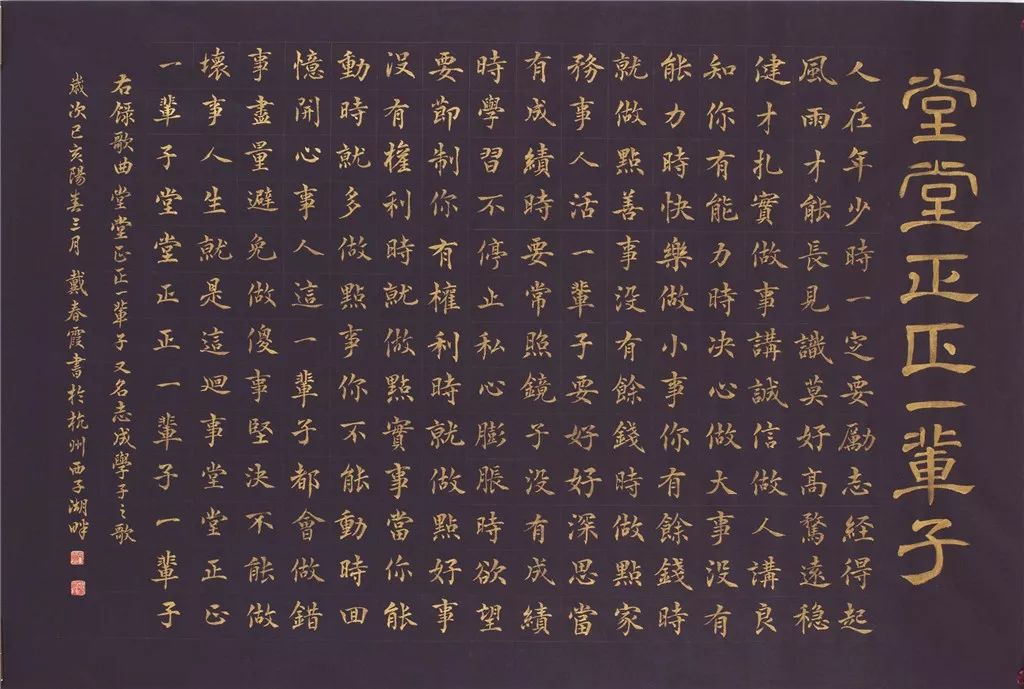 堂堂正正一輩子
人在年少時一定要勵志経得起
風雨才能長見識莫好高騖遠穩
健才扎實做事講誠信做人講良
知你有能力時决心做大事没有
能力時快樂做小事你有餘錢時
就做點善事没有餘錢時做點家
務事人活一輩子要好好深思當
有成績時要常照鏡子没有成績
時學習不停止私心膨脹時欲望
要節制你有權利時就做點好事
没有權利時就做點實事當你能
動時就多做點事你不能動時回
憶開心事人這一輩子都會做錯
事盡量避免做傻事堅决不能做
壞事人生就是這迴事堂堂正正
一輩子堂堂正正一輩子一輩子
右録歌曲堂堂正正一輩子又名志成學子之歌
歲次己亥陽春三月戴春霞書於杭州西子湖畔